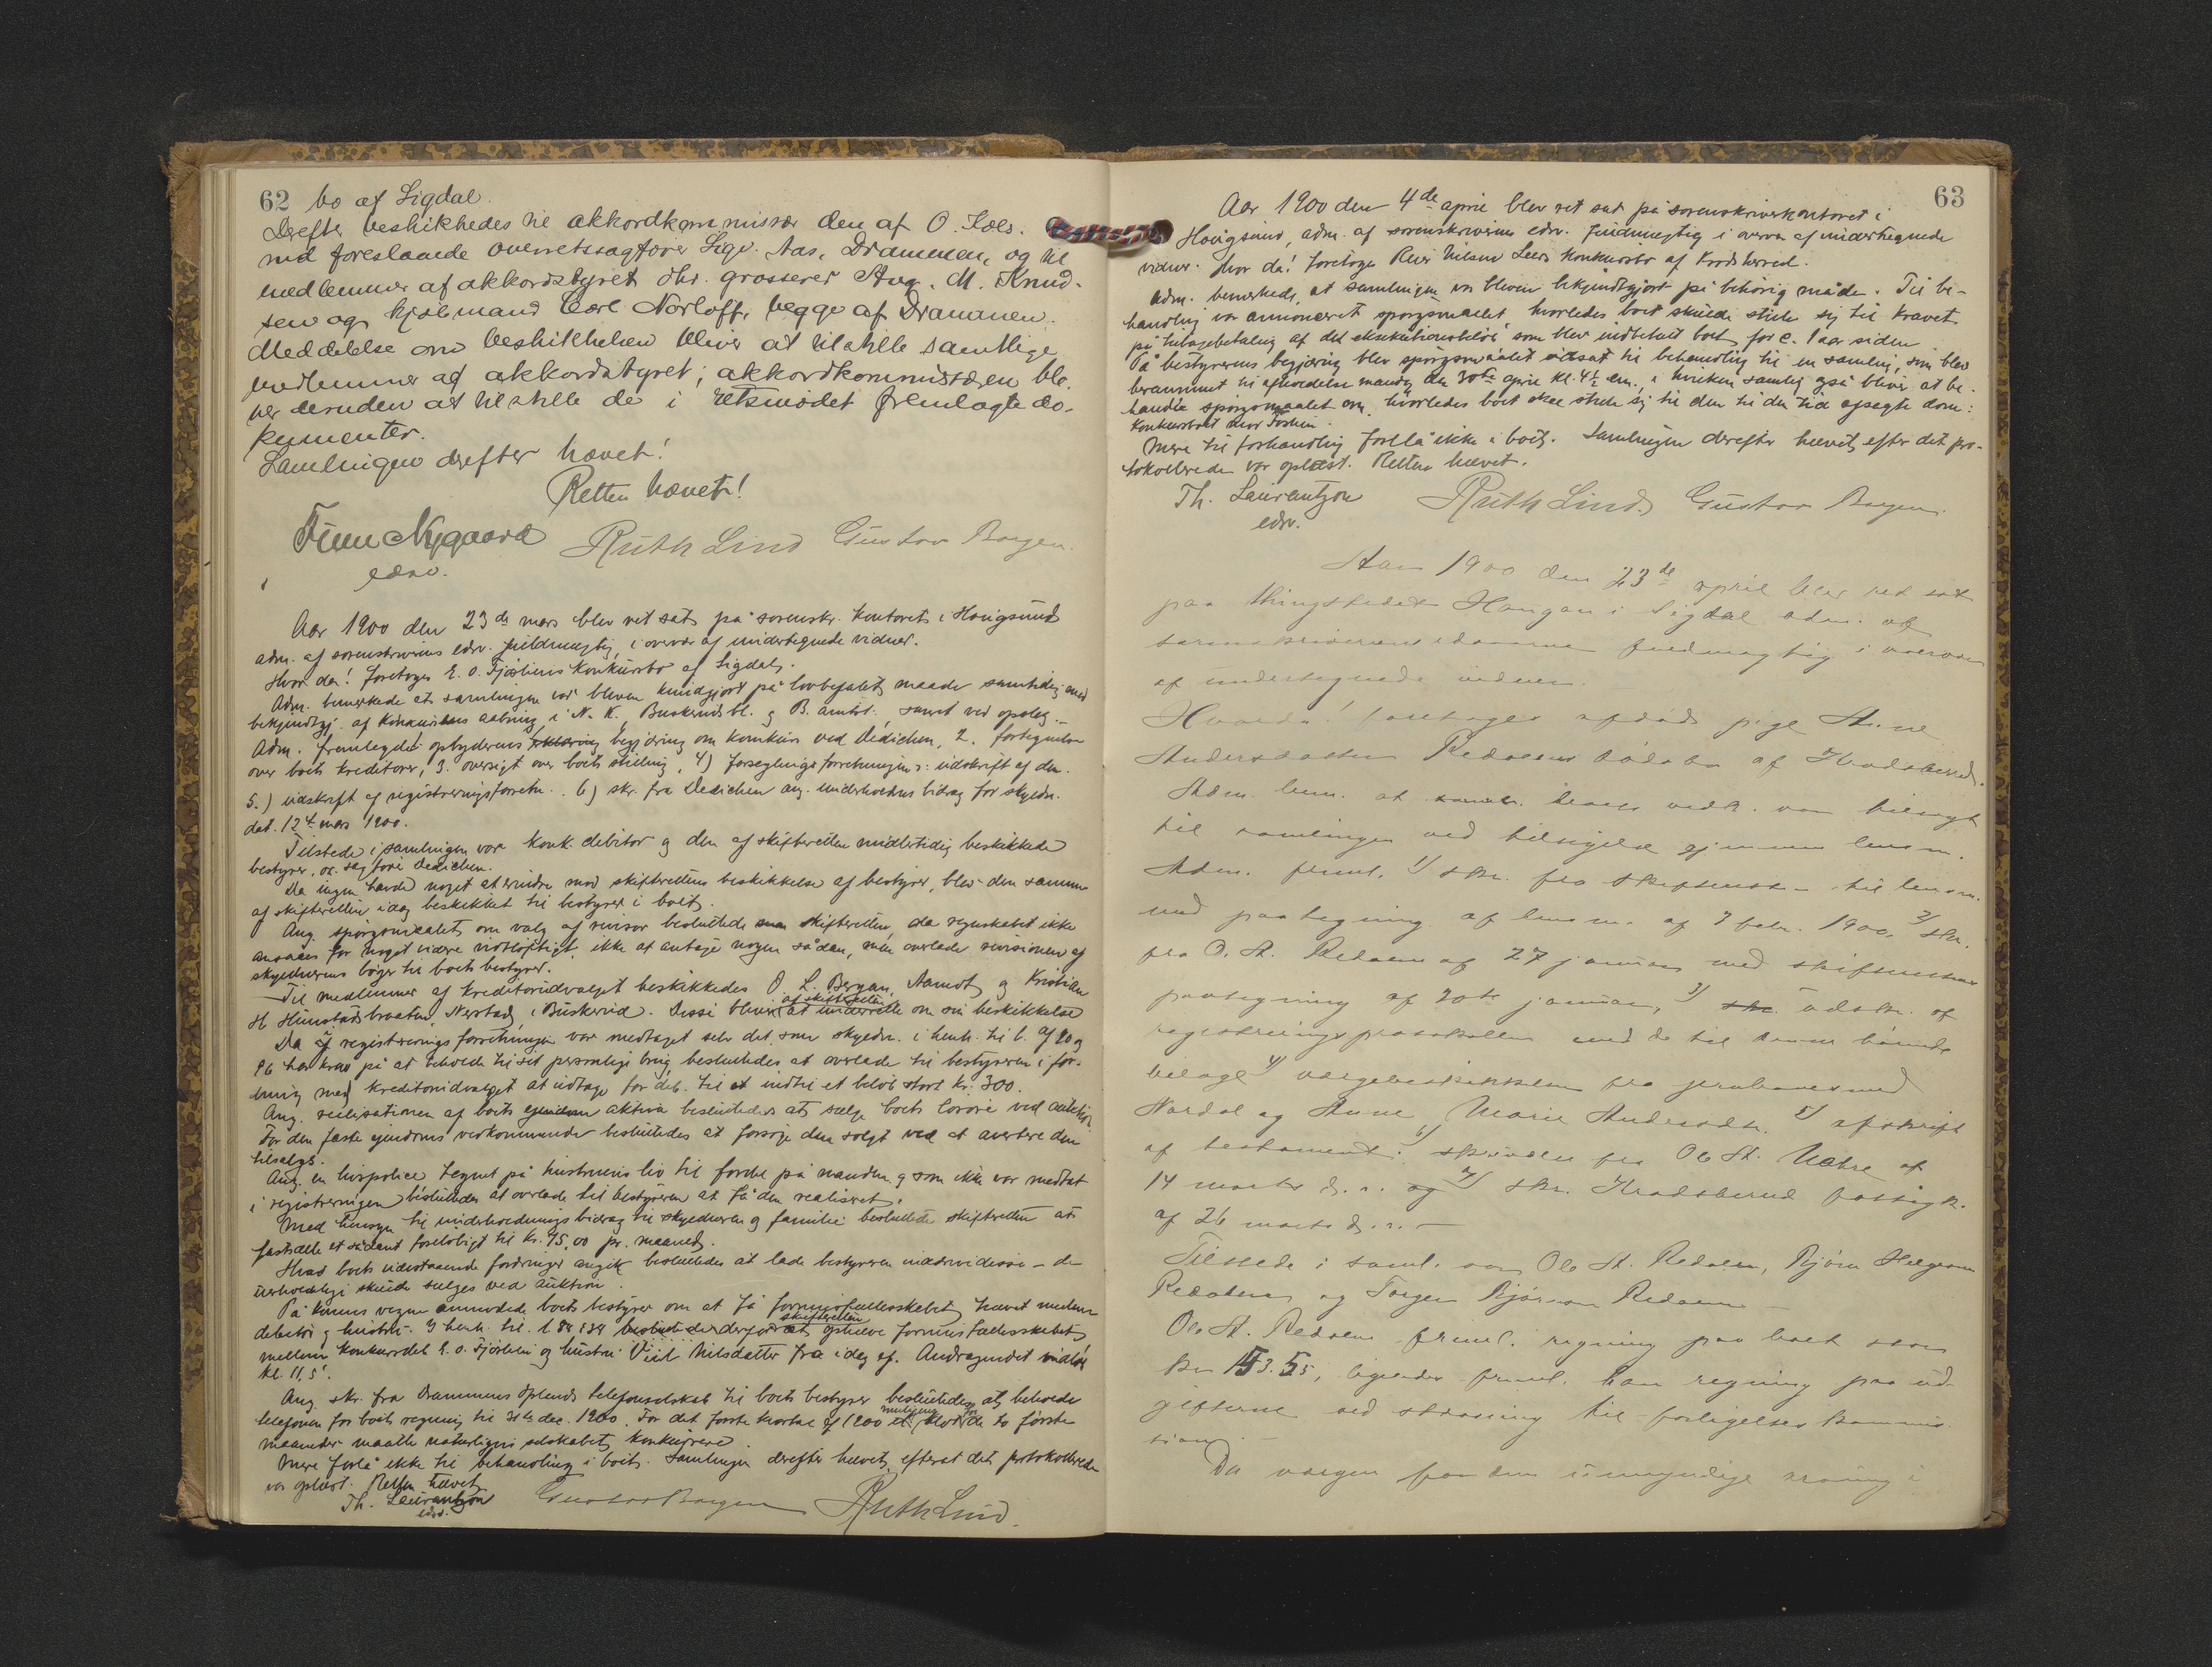 62 bo af Sigdal.
Derefter beskikkedes til akkordkommissær den af O. Kols-
rud foreslaaede overretssagfører Sigv. Aas, Drammen, og til
medlemmer af akkordstyret hr. grosserer Aug. M. Knud-
sen og kjøbmand Carl Norloff, begge af Drammen.
Meddelelse om beskikkelsen bliver at tilstille samtlige
medlemmer af akkordstyret; akkordkommissæren bli-
ver desuden at tilstille de i retsmødet fremlagte do-
kumenter.
Samlingen derefter hævet!
Retten hævet!
Finn Nygaard Ruth Lind Gustav Borgen.
edsv.
Aar 1900 den 23de mars blev ret sat på sorenskr. kontoret i Hougsund
adm. af sorenskriverens edsv. fuldmægtig, i overvær af undertegnede vidner.
Hvor da! foretoges E. O. Fjøsliens konkursbo af Sigdal.
Adm. bemerkede at samlingen var bleven kundgjort på lovbefalet maade samtidig med
bekjendtgj. af konkursens aabning i N. K., Buskeruds bl. og B. amtst., samt ved opslag.
Adm. fremlagde opbyderens erklæring begjæring om konkurs ved Dedichen, 2. fortegnelse
over boets kreditorer, 3. oversigt over boets stilling, 4) forseglingsforretningen ɔ: udskrift af den.
5.) udskrift af registreringsforretn. 6) skr. fra Dedichen ang. underholdnings bidrag for skyldn.
dat. 12te mars 1900.
Tilstede i samlingen var konk. debitor og den af skifteretten midlertidig beskikkede
bestyrer, o.r. sagfører Dedichen.
Da ingen havde noget at erindre mod skifterettens beskikkelse af bestyrer, blev den samme
af skifteretten idag beskikket til bestyrer i boet.
Ang. spørgsmaalet om valg af revisor besluttede skifteretten, da regnskabet ikke
ansaaes for noget videre vidtløftigt, ikke at antage nogen sådan, men overlade revisionen af
skyldnerens bøger til boets bestyrer.
Til medlemmer af kreditorudvalget beskikkedes O. L. Bergan, Aamot, og Kristian
af skifteretten
H. Hunstadbraaten, Nerstad, i Buskerud. Disse bliver at underrette om sin beskikkelse
Da i registreringsforretningen var medtaget selv det, som skyldn. i henh. til l. af 20 og
96 har krav på at beholde til sit personlige brug, besluttedes at overlade til bestyreren i for-
ening med kreditorudvalget at udtage for deb. til et indtil et beløb stort kr. 300.
Ang. realisationen af boets ejendom aktiva besluttedes at sælge boets løsøre ved auktion.
For den faste ejendoms vedkommende besluttedes at forsøge den solgt ved at avertere den
tilsalgs.
Ang. en livspolice tegnet på hustruens liv til fordel på manden og som ikke var medtat
i registreringen besluttedes at overlade til bestyreren at få den realiseret.
Med hensyn til underholdningsbidrag til skyldneren og familie besluttede skifteretten at
fastsætte et sådant foreløbigt til kr. 75,00 pr. maaned.
Hvad boets udestaaende fordringer angik besluttedes at lade bestyreren inddrive disse – de
uerholdelige skulde sælges ved auktion.
På konens vegne anmodede boets bestyrer om at få formuesfællesskabet hævet mellem
skifteretten
debitor og hustru. I henh. til besluttede derfor at ophæve formuesfællesskabet
mellem konkursdeb. E. O. Fjøslien og hustru Nilsdatter fra idag af. Andragendet indløb
kl. 11,5'.
Ang. skr. fra Drammens Oplands telefonselskab til boets bestyrer besluttedes at beholde
telefonen for boets regning til 31te dec. 1900. For det første kvartal af 1900 de to første
maaneder maatte naturligvis selskabet konkurrere.
Mere forlå ikke til behandling i boet. Samlingen derefter hævet, efterat det protokollerede
var oplæst. Retten hævet.
Th. Laurantzon Gustav Borgen Ruth Lind.
edsv.
63
Aar 1900 den 4de april blev ret sat på sorenskriverkontoret i
Hougsund, adm. af sorenskriverens edsv. fuldmægtig i overvær af undertegnede
vidner. Hvor da! foretoges Nilsen Leers konkursbo af Krødsherred.
Adm. bemerkede, at samlingen var bleven bekjendtgjort på behørig måde. Til be-
handling var annonceret spørgsmaalet, hvorledes boet skulde stille sig til kravet
på tilbagebetaling af det eksekutionsbeløb som blev indbetalt boet for c. 1 aar siden
På bestyrerens begjæring blev spørgsmaalet udsat til behandling til en samling, som blev
berammet til afholdelse mandag den 30te april kl. 4½ em., i hvilken samling også bliver at be-
handle spørgsmaalet om, hvorledes boet skal stille sig til den til den tid afsagte dom:
Konkursboet mod
Mere til forhandling forelå ikke i boet. Samlingen derefter hævet, efter det pro-
tokollerede var oplæst. Retten hævet.
Th. Laurantzon Ruth Lind Gustav Borgen.
edsv.
Aar 1900 den 23de april blev ret sat
paa thingstedet Haugan i Sigdal adm. af
sorenskriverens edsvorne fuldmægtig i overvær
af undertegnede vidner.
Hvorda! foretoges afdøde pige Anne
Andersdatter Redalens dødsbo af Krødsherred.
Adm. bem. at samtl. boets vedk. var tilsagt
til samlingen ved tilsigelse gjennem lensm.
Adm. freml. 1/ skr. fra skifteretten til lensm.
med paategning af lensm. af 7 febr. 1900, 2/ skr.
fra O. A. Redalen af 27 januar med skifterettens
paategning af 30te januar, 3/ skr. udskr. af
registreringsprotokollen med de til denne hørende
bilage 4/ værgebeskikkelse for
Nordal og Anne Marie Andersdtr. 5/ afskrift
af testament. 6/ skrivelse fra Ole A. af
14 marts d. a. og 7/ skr. Krødsherred fattigk.
af 26 marts d. a. –
Tilstede i saml. var Ole A. Redalen, Bjørn Helgesen
Redalen og Torger Bjørnsen Redalen
Ole A. Redalen freml. regning paa boet stor
kr 153.55, ligesedes freml. han regning paa ud-
gifterne ved stævning til forligelseskommis-
sion.
Da værgen for den umyndige arving i